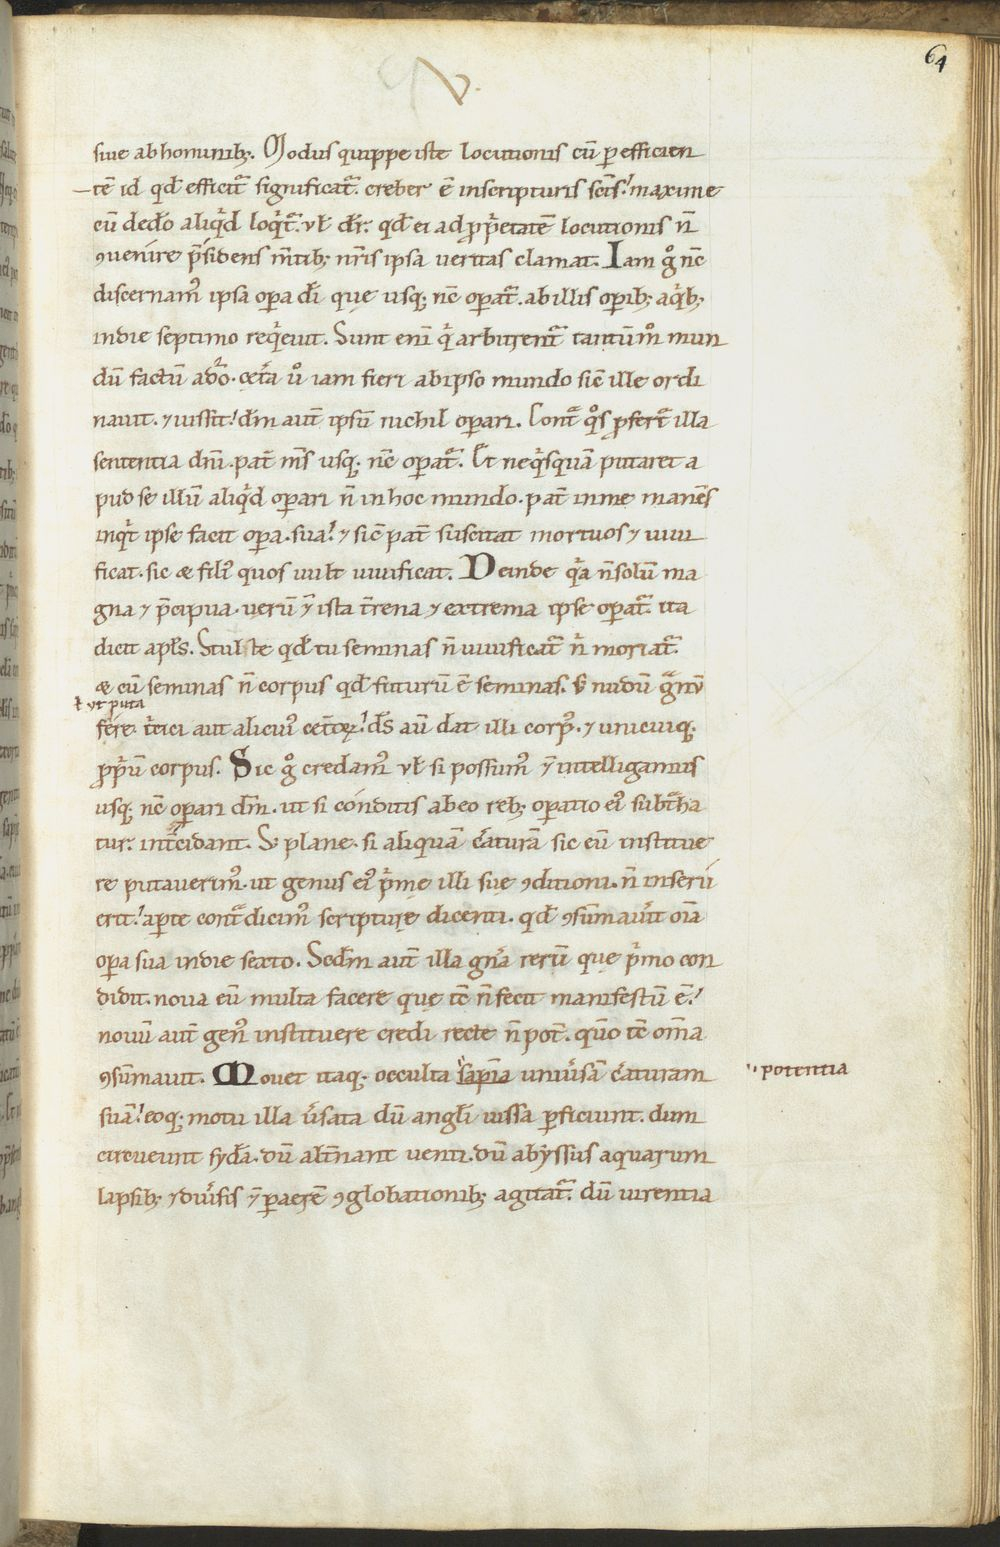 64
V.
siue ab hominibꝫ. Modus quippe iste locutionis cū ꝑ efficien
tē id qd̄ efficit᷑ significat᷑. creber ē inscripturis sc̄is: maxime
cū dedo aliqͥd loqͥt᷑. vł dr̄. qd̄ ei ad ꝓpͥetatē locutionis n̄
ꝯuenire p̄sidens m̄tibꝫ nr̄is ipsa ueritas clamat. Iam gͦ nc̄
discernamꝰ ipsa oꝑa dī̄ que usqꝫ nc̄ oꝑat᷑. ab illis oꝑibꝫ aqͥbꝫ
indie septimo reqͥeuit. Sunt eni qͥ arbitrent᷑ tantūmͦ mun
dū factū adͦo. cet͛a uͦ iam fieri ab ipso mundo sic̄ ille ordi
nauit. ⁊ iussit: dm̄ aut̄ ipsū nichil oꝑari. Cont͛ qͦs ꝓfert᷑ illa
sententia dn̄i. pat̄ m̄s usqꝫ nc̄ oꝑat᷑. Et neqͥsquā putaret a
pud se illū aliqͥd oꝑari n̄ in hoc mundo. pat̄ in me manēs
inqͥt ipse facit oꝑa sua: ⁊ sic̄ pat̄ suscitat mortuos ⁊ uiui
ficat. sic æ filiꝰ quos uult uiuificat. Deinde qͥa n̄ solū ma
gna ⁊ p̄cipua. uerū ⁊̄ ista t̄rena ⁊ extrema ipse oꝑat᷑. ita
dicit apłs. Stulte qd̄ tu seminas n̄ uiuificat᷑ nͥ moriat᷑.
æ cū seminas n̄ corpus qd̄ futurū ē seminas. s; nudū gͣnū
ł ut puta
fere tͥtici aut alicuiꝰ cet̄oꝝ: dˢ aū dat illi corpꝰ. ⁊ unicuiqꝫ
ꝓpͥū corpus. Sic gͦ credamꝰ vł si possumꝰ ⁊̄ intelligamus
usqꝫ nc̄ oꝑari dm̄. ut si conditis ab eo rebꝫ oꝑatio eiꝰ subt͛ha
tur. int͛cidant. S; plane. si aliquā c͛aturā sic eū institue
re putauerimꝰ. ut genus eiꝰ pͥmę illi suę ꝯditioni. n̄ inseru
erit: aꝑte cont͛dicimꝰ scripturę dicenti. qd̄ ꝯsūmau͛it oīa
oꝑa sua indie sexto. Sedm̄ aut̄ illa gn͛a rerū que pͥmo con
didit. noua eū multa facere que tc̄ n̄ fecit manifestū ē:
nouū aut̄ genꝰ instituere credi recte n̄ pot̄. qn̄o tc̄ om̄a
ꝯsūmauit. Mouet itaqꝫ occulta sapia uniu͛sā c͛aturam
potentia
suā: eoqꝫ motu illa u͛sata dū angłi iussa ꝑficiunt. dum
circueunt syd͛a. dū alt̄nant uenti. dū abyssus aquarum
lapsibꝫ ⁊ diu͛sis ⁊̄ ꝑ aerē ꝯglobationibꝫ agitat᷑. dū uirentia